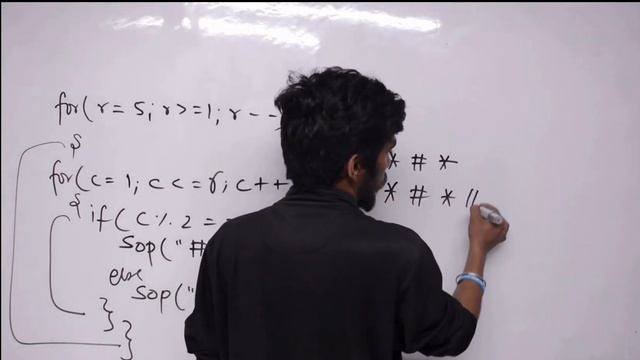 for( r = 5; r >= 1; r - -
{
for( c = 1; c <= r; c ++
{ if( c % 2 =
Sop(" #
else
Sop("
}
}
* # *
* # * //